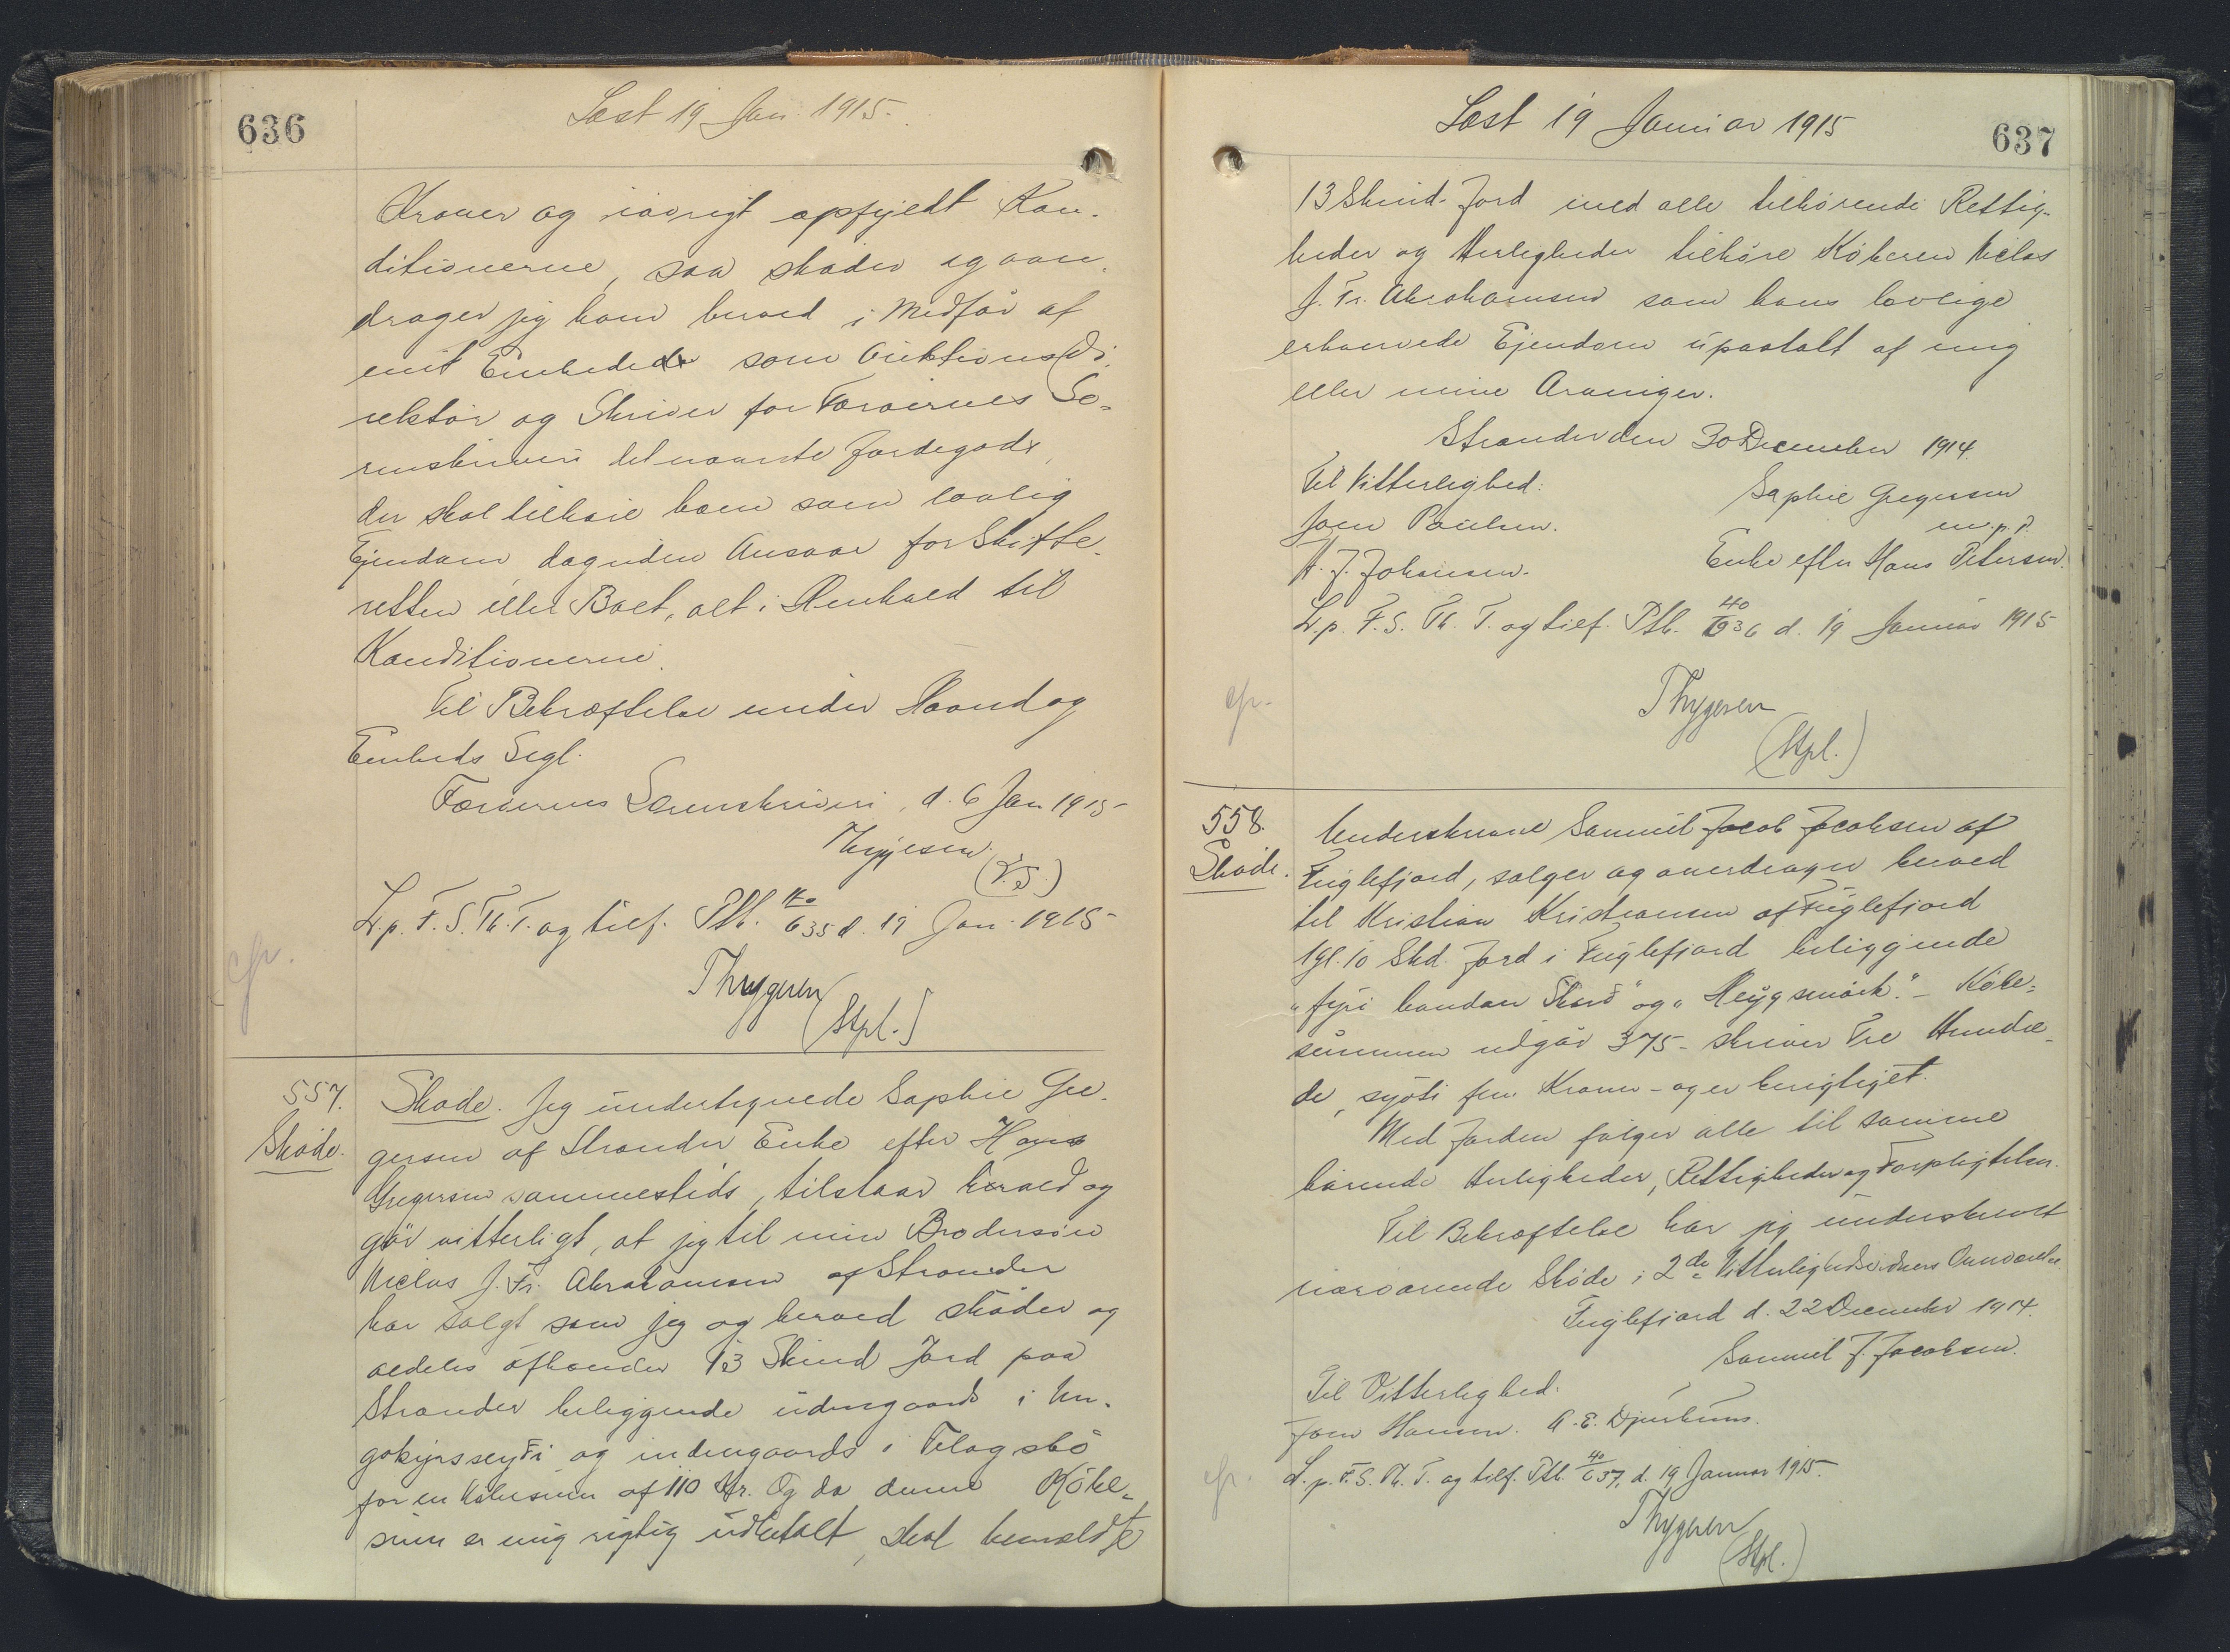 636
Læst 19 Jan. 1915.
Kroner og iøvrigt opfyldt Kon-
ditionerne, saa skøder og over-
drager jeg ham herved i Medför af
mit Embede som Auktionsdi-
rektør og Skriver for Færøernes So-
renskriveri det nævnte Jordegods,
der skal tilhøre ham som lovlig
Ejendom dog uden Ansvar for Skifte-
retten eller Boet, alt i Henhold til
Konditionerne.
Til Bekræftelse under Haand og
Embeds Segl.
Færøernes Sorenskriveri, d. 6 Jan 1915
Thygesen.
(L.S.)
L. p. F. S. Th. T. og tilf. Ptk. 40/635 d. 19 Jan. 1915
Thygesen
(Stpl.)
cfr.
557.
Skøde.
Skøde. Jeg undertegnede Sophie Gre-
gersen af Strender Enke efter Hans
Gregersen sammestids, tilstaar herved og
gör vitterligt, at jeg til min Brodersön
Niclas J. Fr. Abrahamsen af Strender
har solgt som jeg og herved skøder og
aldeles afhænder 13 Skind Jord paa
Strender beliggende udengaards i Un-
og indengaards i
for en Købesum af 110 Kr. Og da denne Købe-
sum er mig rigtig udbetalt, skal bemeldte
Læst 19 Januar 1915
637
13 Skind Jord med alle tilhørende Rettig-
heder og Herligheder tilhöre Köberen Niclas
J. Fr. Abrahamsen som hans lovlige
erhvervede Ejendom upaatalt af mig
eller mine Arvinger.
Strender den 30 December 1914.
Til Vitterlighed:
Sophie Gregersen
m. p. P.
Joen Poulsen.
H. J. Johansen.
Enke efter Hans Petersen.
L. p. F. S. Th. T. og tilf. Ptk. 40/636 d. 19 Januar 1915
Thygesen
(Stpl.)
cfr.
558.
Skøde.
Underskrevne Samuel Jacob Jacobsen af
Fuglefjord, sælger og overdrager herved
til Kristian Kristiansen af Fuglefjord
1 Gl. 10 Skd. Jord i Fuglefjord beliggende
"fyri handan Skarð" og "Heygsmørk." - Købe-
summen udgør 375 - skriver Tre Hundre-
de, syvti fem Kroner - og er berigtiget.
Med Jorden følger alle til samme
hørende Herligheder, Rettigheder og Forpligtelser.
Til Bekræftelse har jeg underskrevet
nærværende Skøde i 2de Vitterlighedsvidners Overværelse.
Fuglefjord d. 22 December 1914.
Samuel J. Jacobsen.
Til Vitterlighed:
Joen Hansen. A. E. Djurhuus.
L. p. F. S. Th. T. og tilf. Ptk. 40/637, d. 19 Januar 1915.
Thygesen
(Stpl.)
cfr.